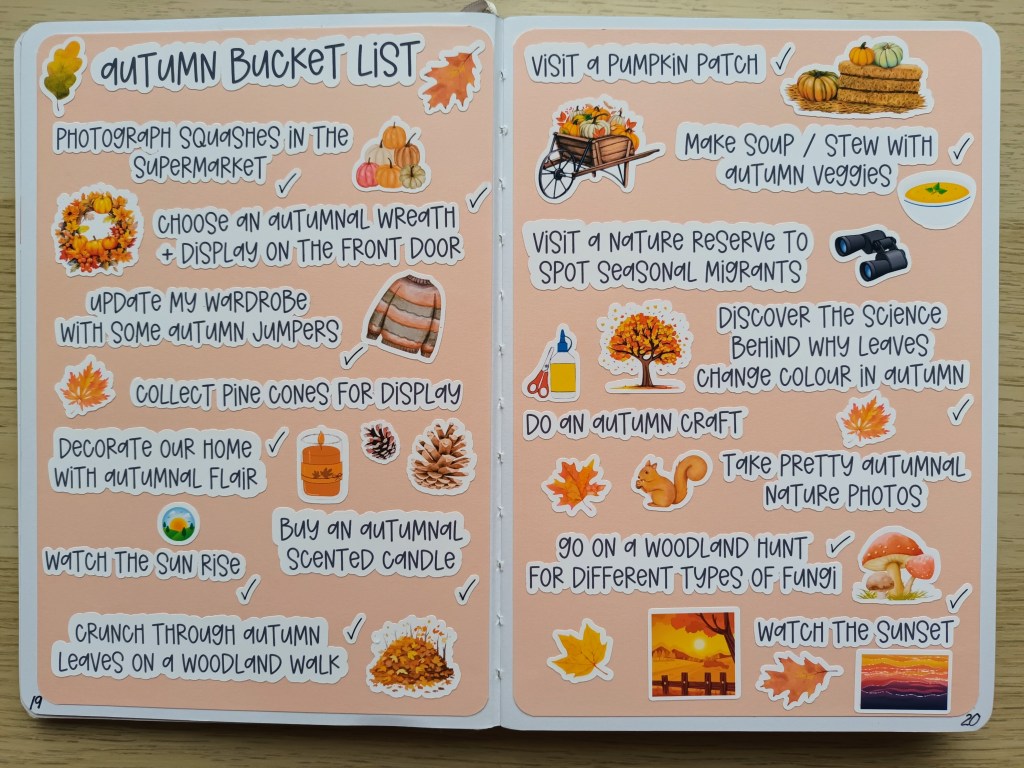 AUTUMN BUCKET LIST
PHOTOGRAPH SQUASHES IN THE
SUPERMARKET
CHOOSE AN AUTUMNAL WREATH
+ DISPLAY ON THE FRONT DOOR
UPDATE MY WARDROBE
WITH SOME AUTUMN JUMPERS
COLLECT PINE CONES FOR DISPLAY
DECORATE OUR HOME
WITH AUTUMNAL FLAIR
BUY AN AUTUMNAL
SCENTED CANDLE
WATCH THE SUN RISE
CRUNCH THROUGH AUTUMN
LEAVES ON A WOODLAND WALK
19
VISIT A PUMPKIN PATCH
MAKE SOUP / STEW WITH
AUTUMN VEGGIES
VISIT A NATURE RESERVE TO
SPOT SEASONAL MIGRANTS
DISCOVER THE SCIENCE
BEHIND WHY LEAVES
CHANGE COLOUR IN AUTUMN
DO AN AUTUMN CRAFT
TAKE PRETTY AUTUMNAL
NATURE PHOTOS
GO ON A WOODLAND HUNT
FOR DIFFERENT TYPES OF FUNGI
WATCH THE SUNSET
20